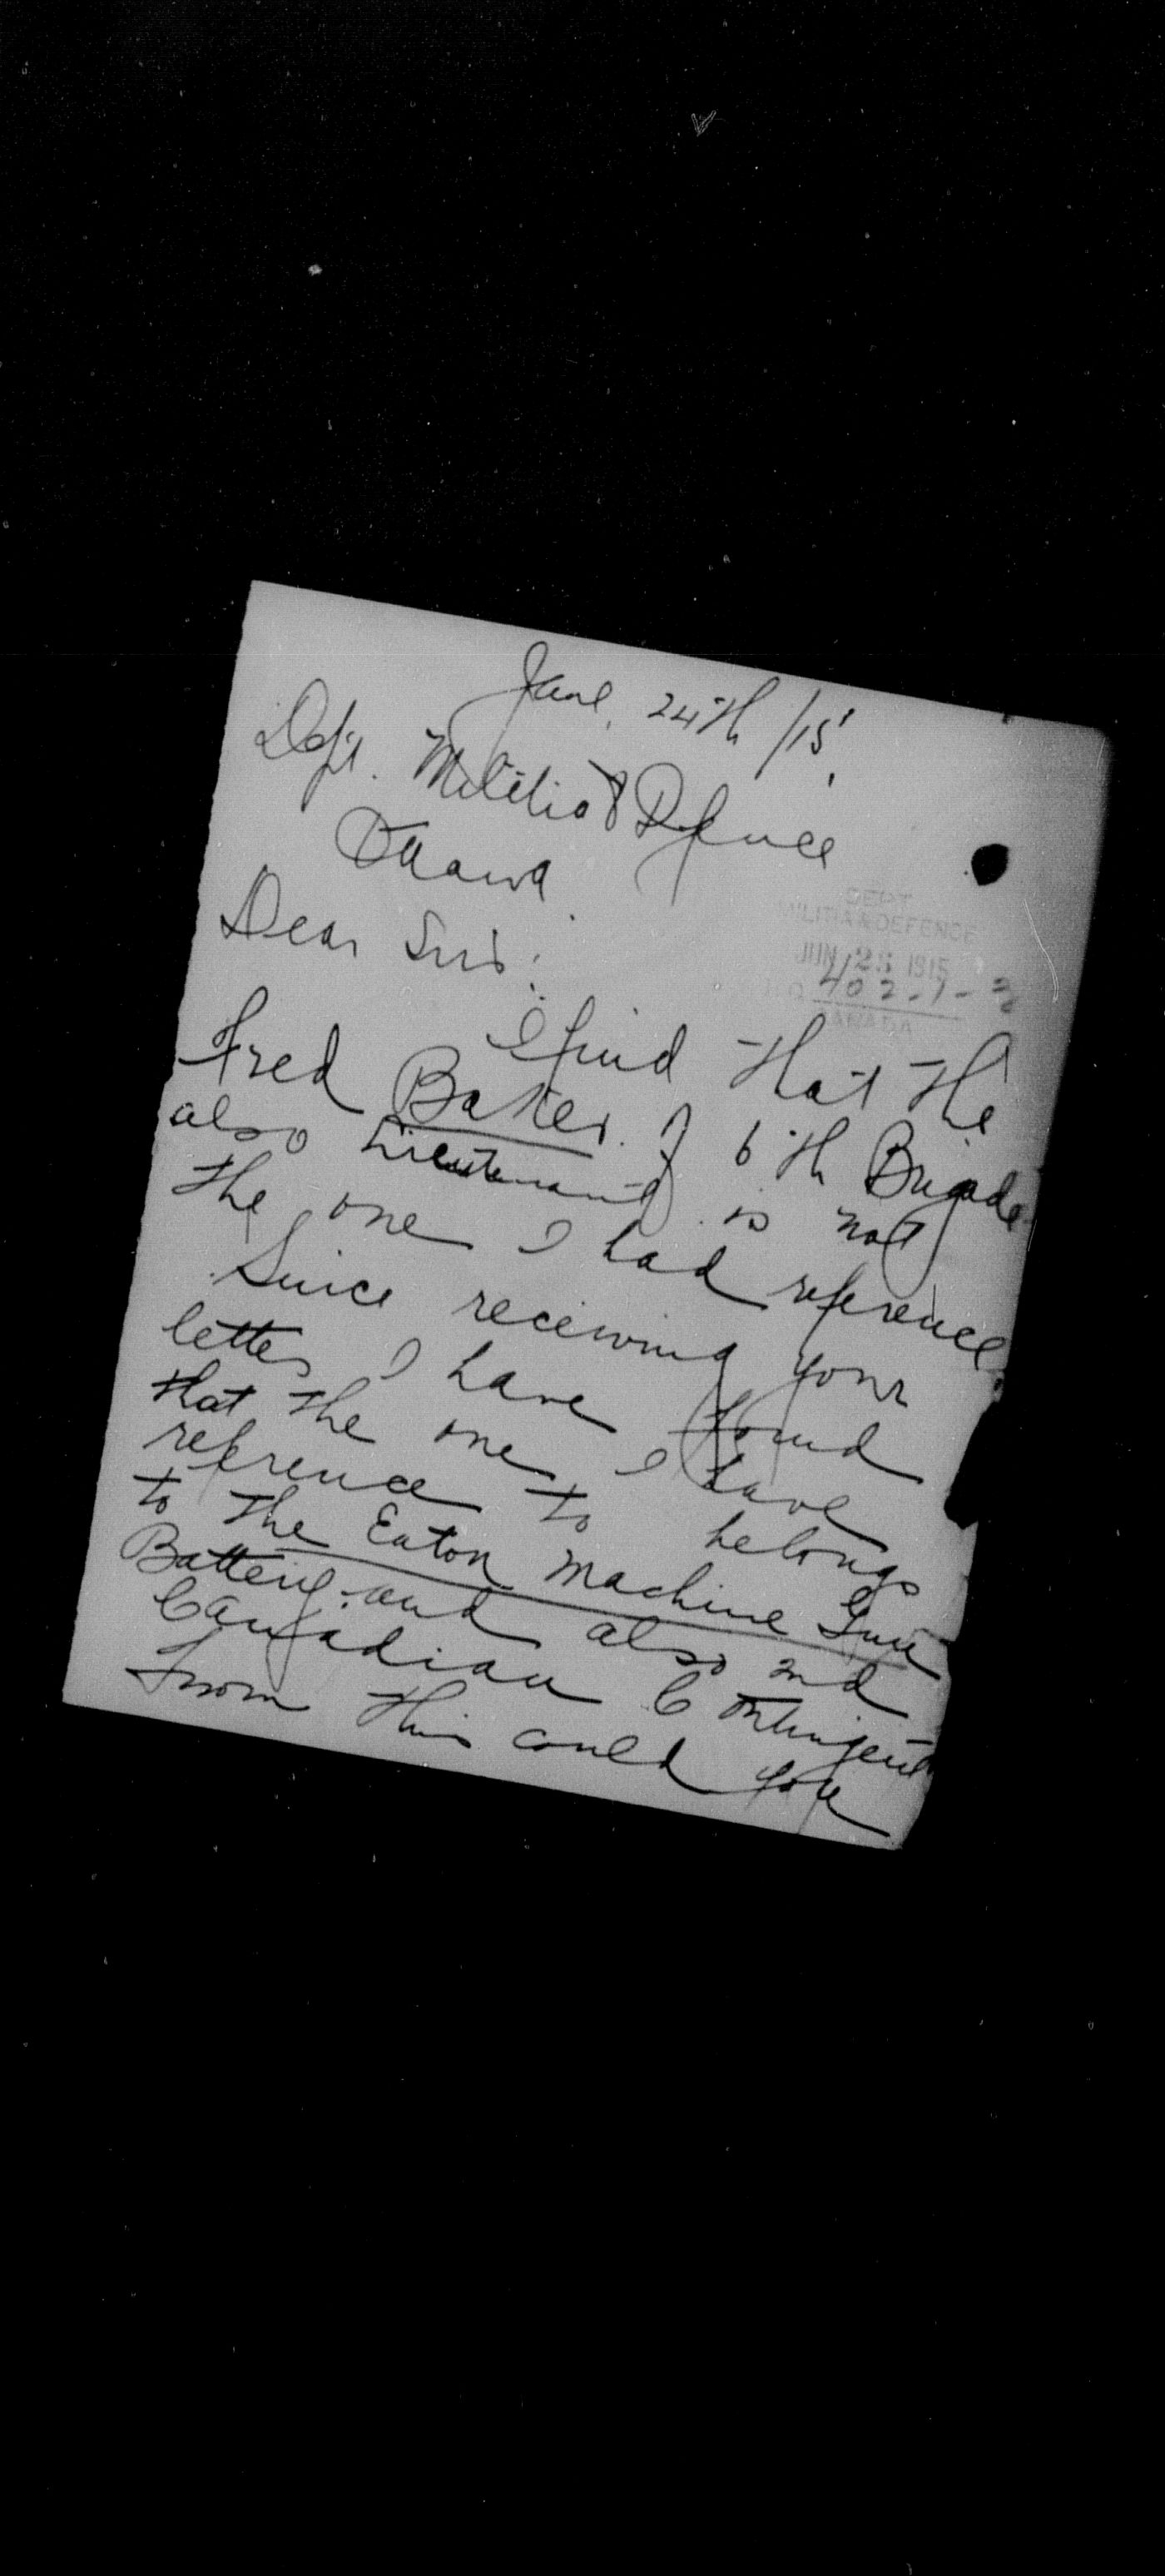 June 24th /15.
Dept. Militia & Defence
Ottawa.
Dear Sirs:
DEPT
MILITIA & DEFENCE
JUN 25 1915
H.Q. 402-1-
CANADA
I find that the
Fred Baker of 6th Brigade
also Lieutenant is not
the one I had reference.
Since receiving your
letter I have found
that the one I have
reference to belongs
to the Eaton Machine Gun
Battery and also 2nd
Canadian Contingent
From this could you